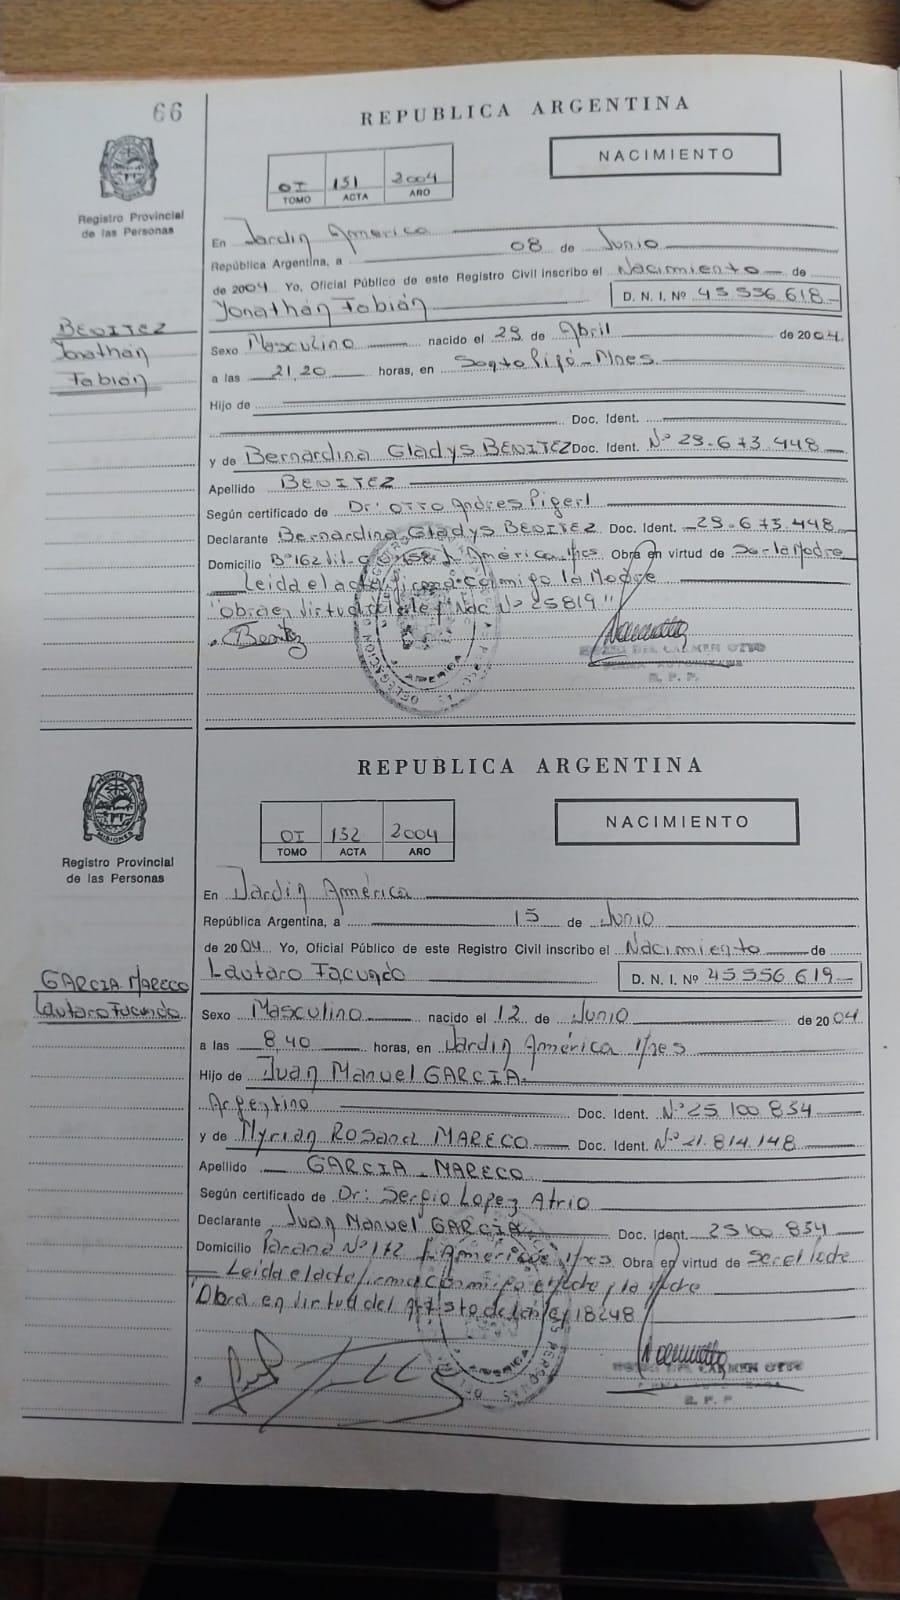 66
REPUBLICA ARGENTINA
NACIMIENTO
OI 131 2004
TOMO ACTA AÑO
Registro Provincial
de las Personas
En Jardin América
República Argentina, a 08 de Junio
de 2004 Yo, Oficial Público de este Registro Civil inscribo el Nacimiento de
Jonathán Fabián D. N. I. Nº 45 556 618
BENITEZ
Jonathán
Fabián
Sexo Masculino nacido el 29 de Abril de 2004
a las 21,20 horas, en Santo Pipó - Mnes.
Hijo de
Doc. Ident.
y de Bernardina Gladys BENITEZ Doc. Ident. Nº 29.673.448
Apellido BENITEZ
Según certificado de Dr: OTTO Andres Pigerl
Declarante Bernardina Gladys BENITEZ Doc. Ident. 29.673.448
Domicilio Bº 162 Viv. América Mnes Obra en virtud de Ser la Madre
Leida el acta firma conmigo la Madre
"obra en virtud del Nac. Nº 25819"
Benitez
DEL CARMEN OTTO
R. P. P.
REPUBLICA ARGENTINA
NACIMIENTO
OI 132 2004
TOMO ACTA AÑO
PROVINCIA DE MISIONES
Registro Provincial
de las Personas
En Jardin América
República Argentina, a 15 de Junio
de 2004 Yo, Oficial Público de este Registro Civil inscribo el Nacimiento de
Lautaro Facundo D. N. I. Nº 45 556 619
GARCIA MARECO
Lautaro Facundo
Sexo Masculino nacido el 12 de Junio de 2004
a las 8,40 horas, en Jardin América Mnes
Hijo de Juan Manuel GARCIA.
Argentino Doc. Ident. Nº 25 100 834
y de Myrian ROSANA MARECO Doc. Ident. Nº 21.814.148
Apellido GARCIA - MARECO
Según certificado de Dr: Sergio Lopez Atrio
Declarante Juan Manuel GARCIA Doc. Ident. 25 100 834
Domicilio Parana Nº 172 J. América Mnes Obra en virtud de Ser el Padre
Leida el acta firma conmigo el Padre y la Madre
"Obra en virtud del Art 5to de la Ley 18248
DEL CARMEN OTTO
R. P. P